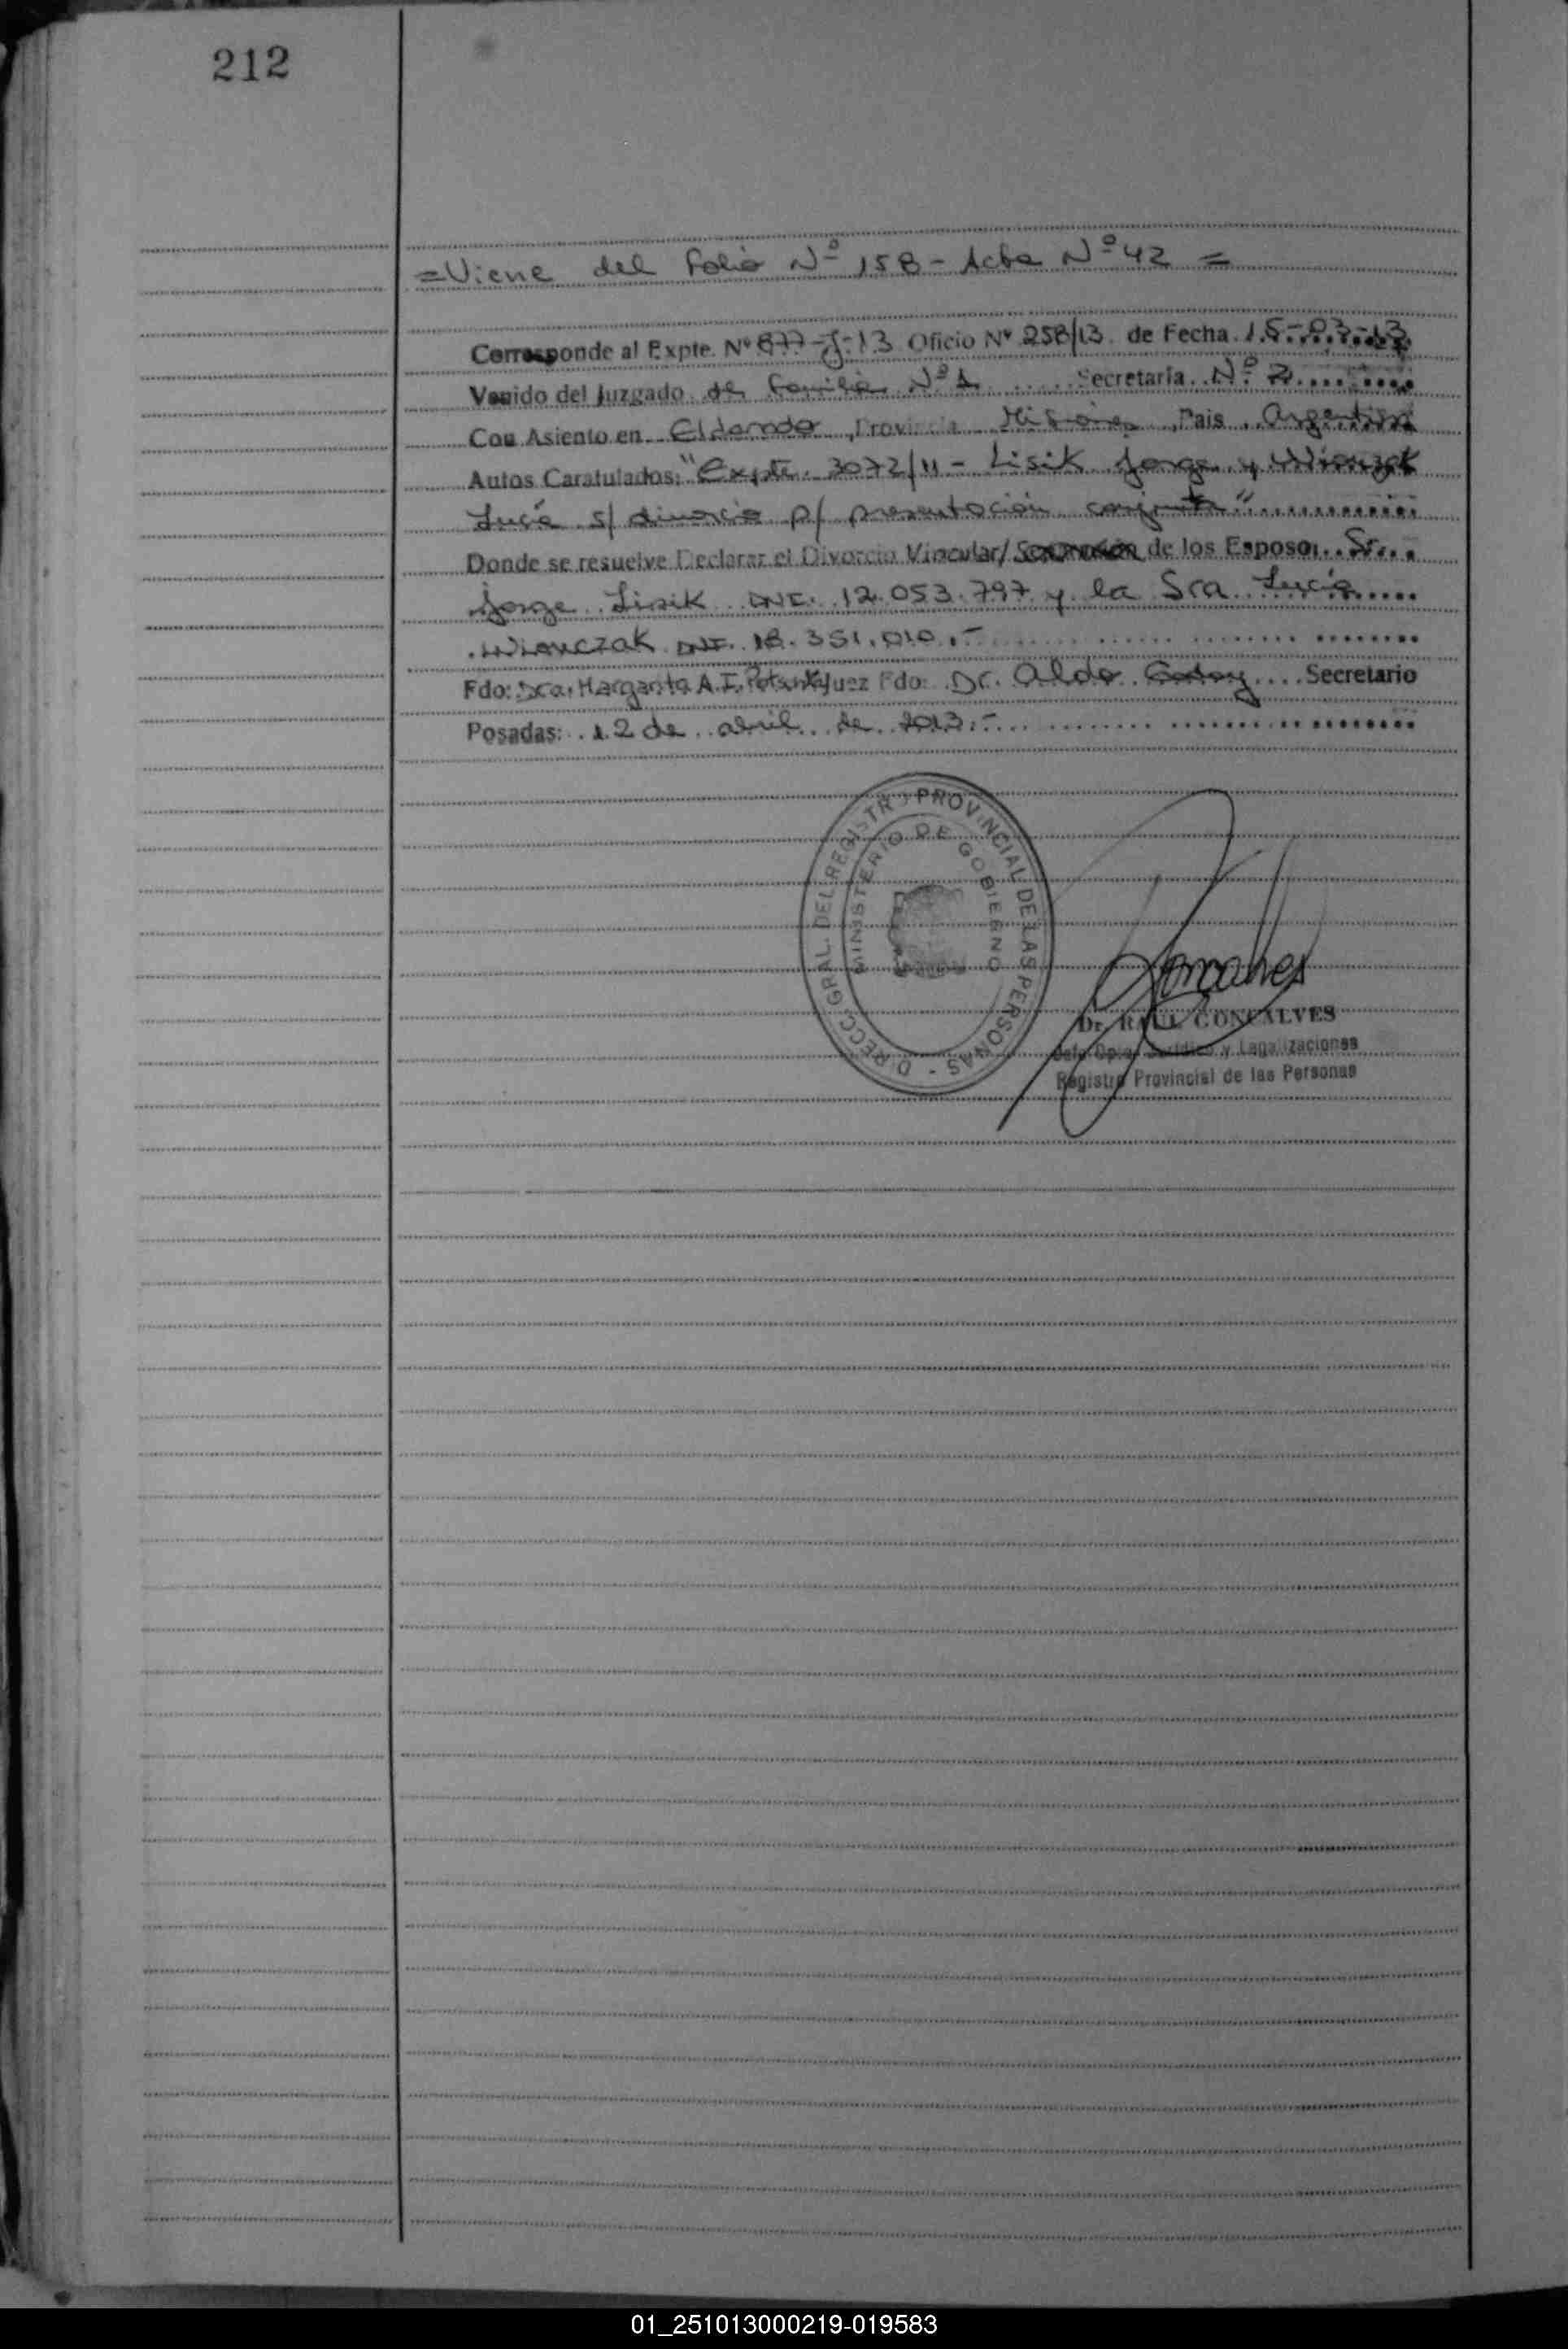 212
=Viene del folio Nº 158 - Acta Nº 42 =
Corresponde al Expte. Nº 877-J-13 Oficio Nº 258/13. de Fecha 15-03-13
Venido del Juzgado de Familia Nº 1 Secretaría Nº 2
Con Asiento en Eldorado, Provincia Misiones, Pais Argentina
Autos Caratulados: "Expte. 3072/11 - Lisik Jorge y Wionczak
Lucía s/ divorcio p/ presentación conjunta"
Donde se resuelve Declarar el Divorcio Vincular/ de los Esposos Sr.
Jorge Lisik DNI. 12.053.797 y la Sra Lucía
Wionczak DNI. 18.351.010.-
Fdo: Dra. Margarita A. I. Juez Fdo: Dr. Aldo Godoy Secretario
Posadas: 12 de abril de 2013.-
DIRECC. GRAL. DEL REGISTRO PROVINCIAL DE LAS PERSONAS -
MINISTERIO DE GOBIERNO
Goncalves
Dr. RAUL GONCALVES
Jefe Dpto. Jurídico y Legalizaciones
Registro Provincial de las Personas
01_251013000219-019583